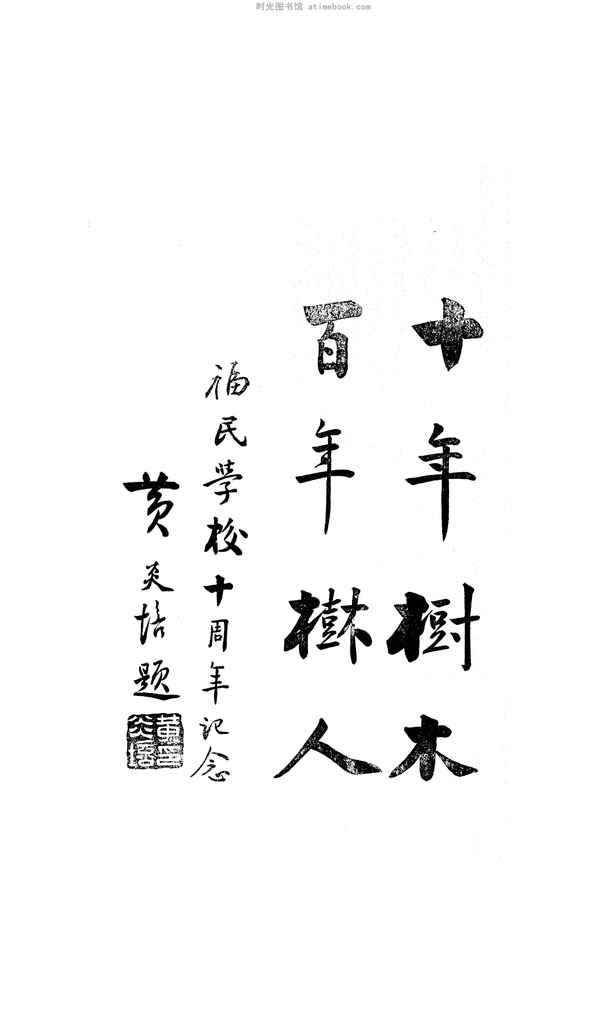 时光图书馆 atimebook.com
十年樹木
百年樹人
福民學校十周年记念
黄炎培题
黄炎培印